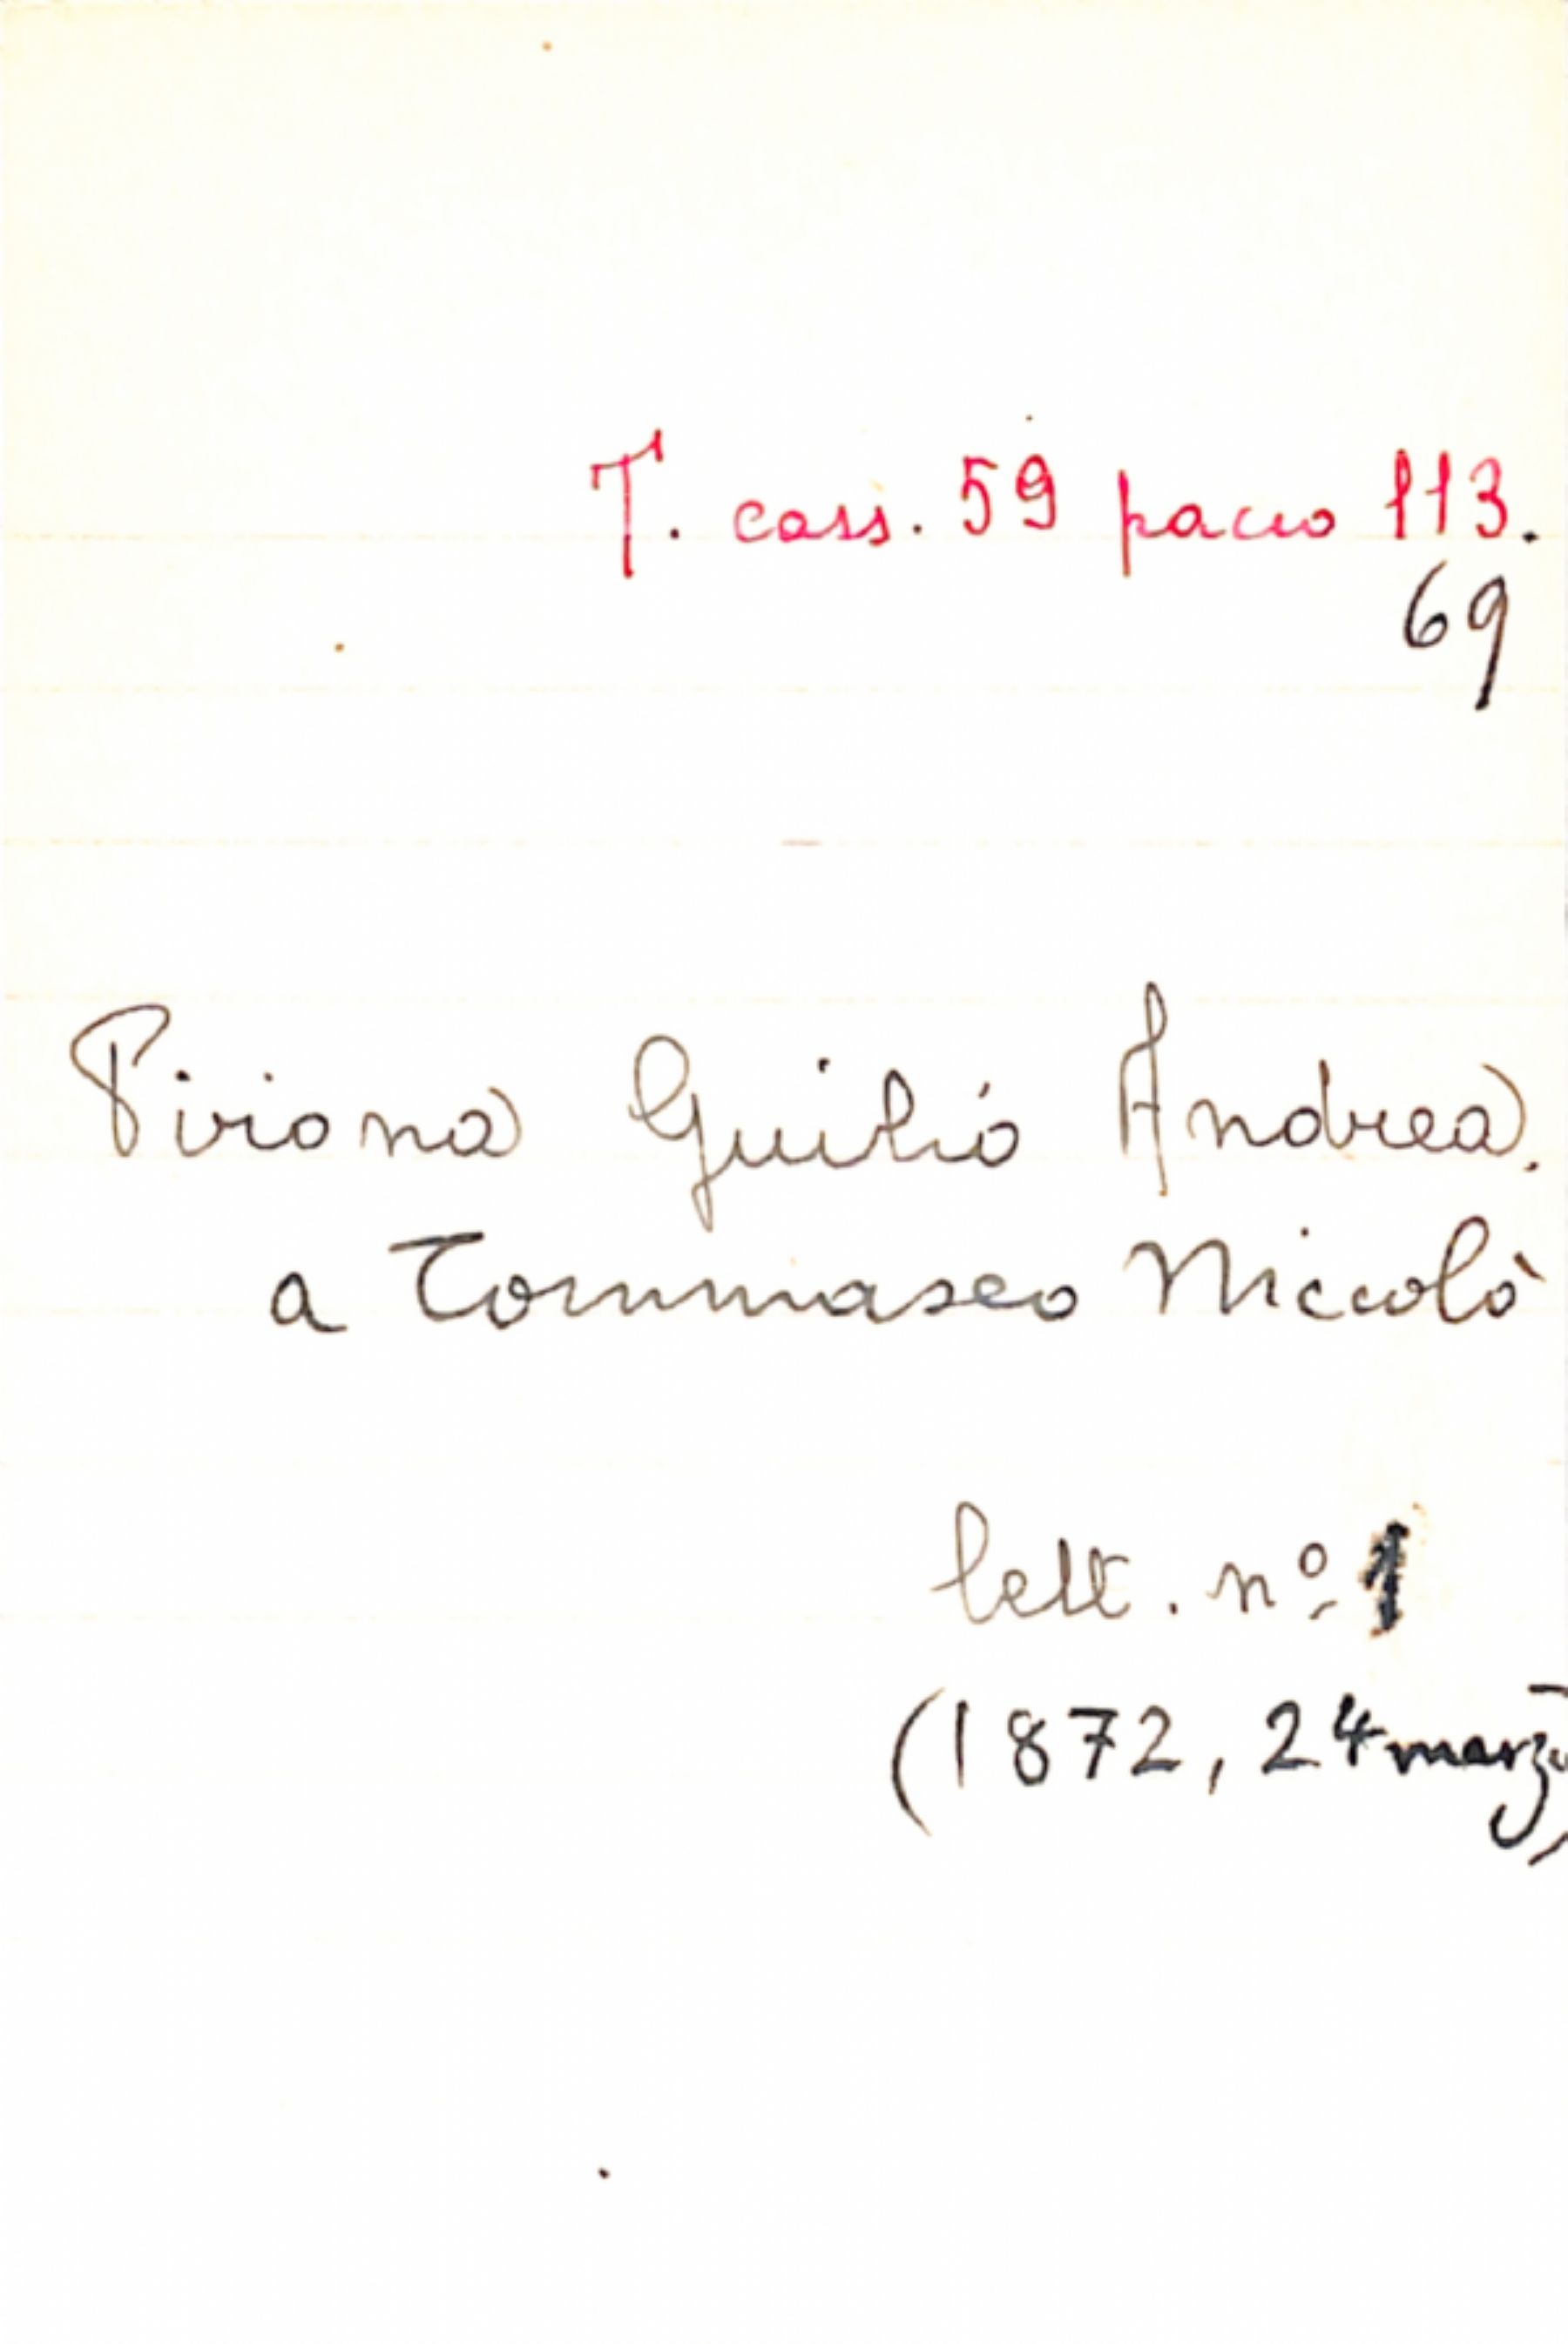 T. cass. 59 pacco 113.
69
Piriona Guilio Andrea.
a Tommaseo Niccolò
lett. nº 1
(1872, 24 marzo)